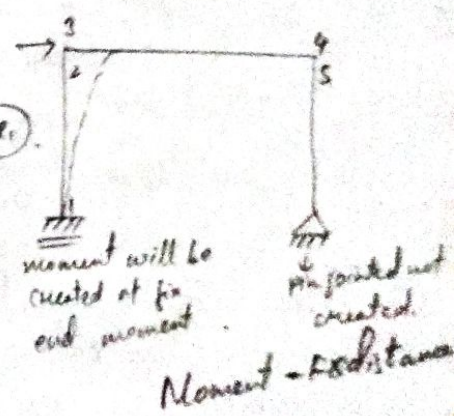 3
4
2
5
1
moment will be
created at fix
end moment.
pin jointed not
created.
Moment = F×distance